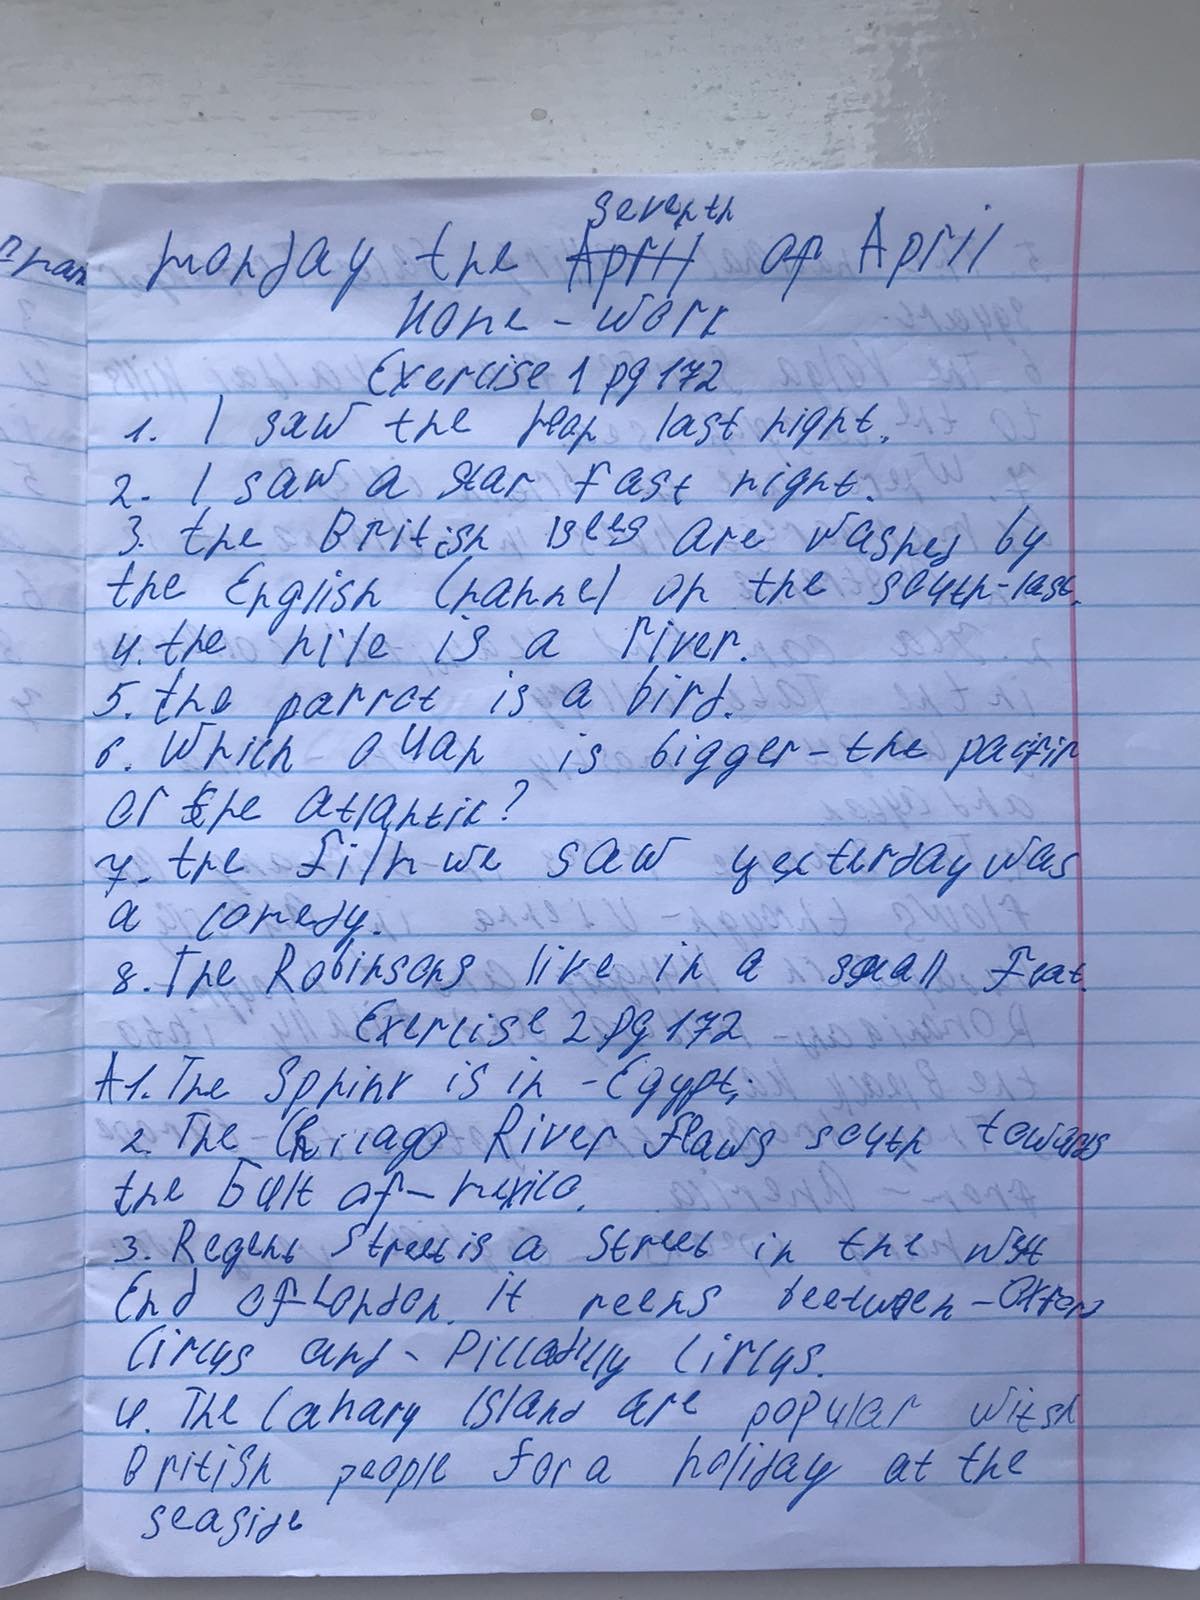 seventh
monday the April of April
Home - work
Exercise 1 pg 172
1. I saw the last night.
2. I saw a star last night.
3. the British Isles are washed by
the English Channel on the south-east.
4. the nile is a river.
5. the parrot is a bird.
6. Which - is bigger - the pacific
or the atlantic?
7. the film we saw yesterday was
a comedy.
8. The Robinsons live in a small flat.
Exercise 2 pg 172
A 1. The Sphinx is in - Egypt.
2. The - Chicago River flows south towards
the Gulf of - mexico.
3. Regent Street is a street in the West
End of - London. it between -
Circus and - Piccadilly Circus.
4. The Canary Island are popular with
British people for a holiday at the
seaside